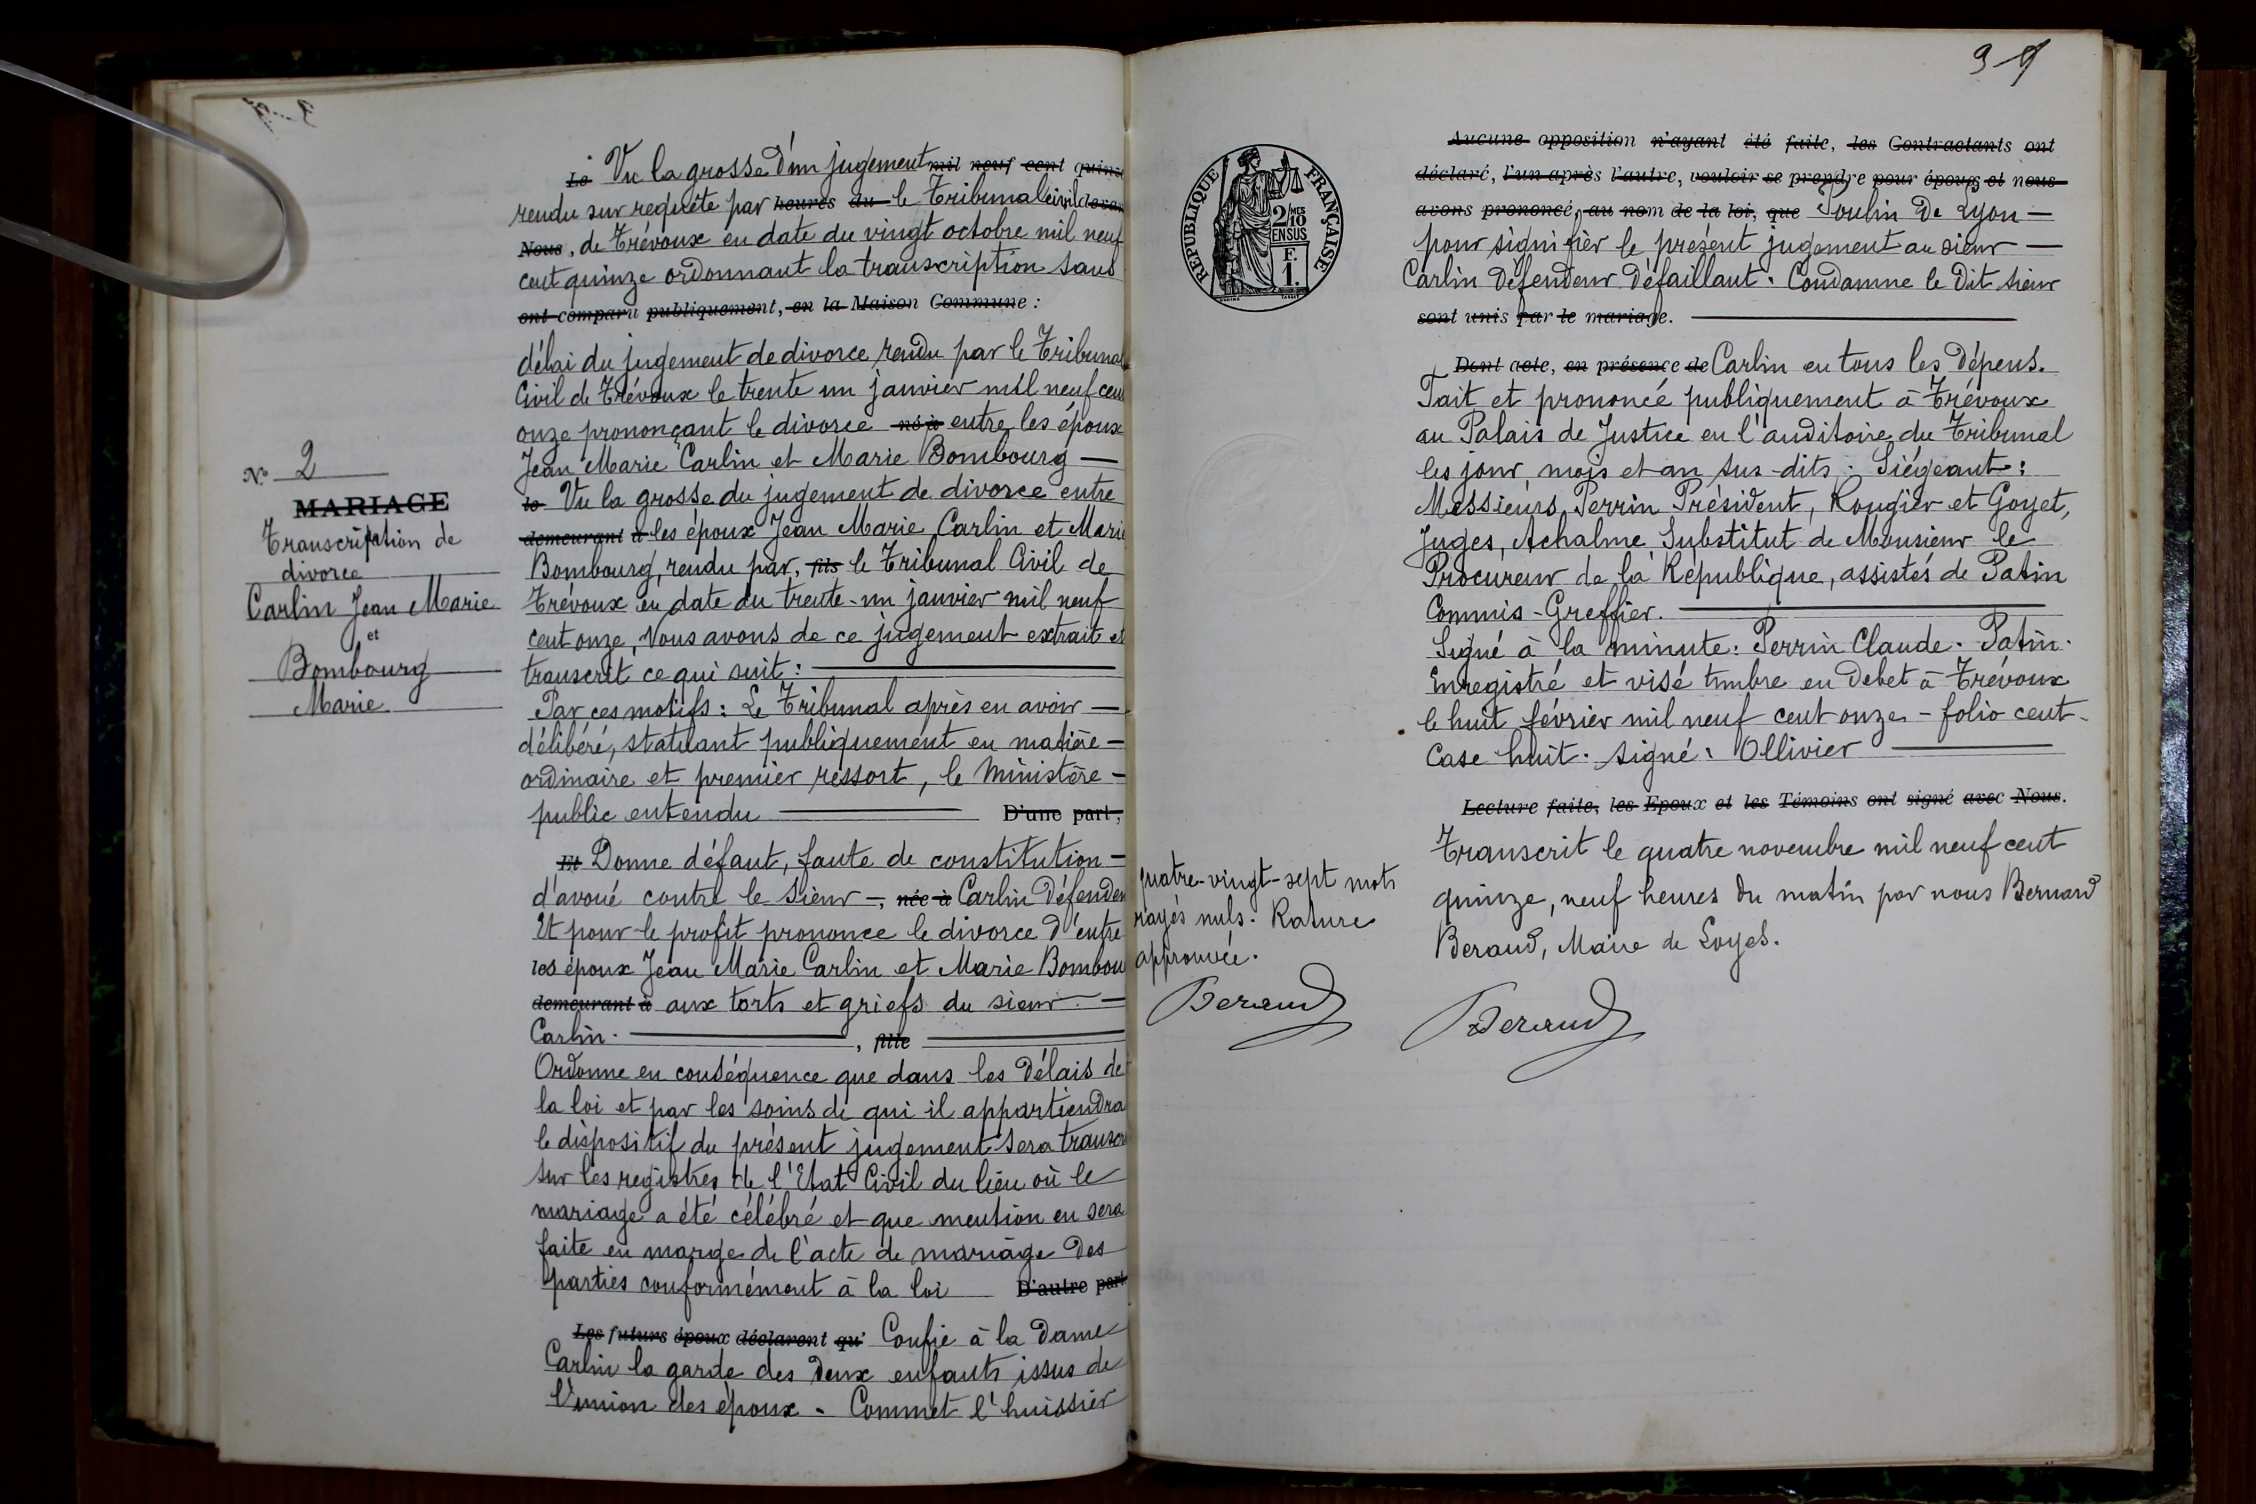 Le Vu la grosse d'un jugement mil neuf cent quinze
rendu sur requête par heures du le Tribunal Civil devant
Nous, de Trévoux en date du vingt octobre mil neuf
cent quinze ordonnant la transcription sans
ont comparu publiquement, en la Maison Commune :
délai du jugement de divorce rendu par le Tribunal
Civil de Trévoux le trente un janvier mil neuf cent
onze prononçant le divorce né à entre les époux
Jean Marie Carlin et Marie Bombourg —
le Vu la grosse du jugement de divorce entre
demeurant à les époux Jean Marie Carlin et Marie
Bombourg, rendu par, fils le Tribunal Civil de
Trévoux en date du trente-un janvier mil neuf
cent onze, Nous avons de ce jugement extrait et
transcrit ce qui suit :
Par ces motifs : Le Tribunal après en avoir —
délibéré, statuant publiquement en matière —
ordinaire et premier ressort, le Ministère —
public entendu D'une part,
Et Donne défaut, faute de constitution —
d'avoué contre le sieur —, née à Carlin Défendeu
Et pour le profit prononce le divorce d'entre
les époux Jean Marie Carlin et Marie Bombou
demeurant à aux torts et griefs du sieur —
Carlin. , fille
Ordonne en conséquence que dans les délais de
la loi et par les soins de qui il appartiendra
le dispositif du présent jugement sera transcr
sur les registres de l'Etat Civil du lieu où le
mariage a été célébré et que mention en sera
faite en marge de l'acte de mariage des
parties conformément à la loi D'autre part
Les futurs époux déclarent qu' Confie à la Dame
Carlin la garde des deux enfants issus de
l'union des époux. Commet l'huissier
N° 2
MARIAGE
Transcription de
divorce
Carlin Jean Marie
et
Bombourg
Marie
39
RÉPUBLIQUE FRANÇAISE
2/10 MES
EN SUS
F.
1.
Aucune opposition n'ayant été faite, les Contractants ont
déclaré, l'un après l'autre, vouloir se prendre pour époux et nous
avons prononcé, au nom de la loi, que Poulin de Lyon —
pour signifier le présent jugement au sieur —
Carlin défendeur défaillant. Condamne le dit sieur
sont unis par le mariage.
Dont acte, en présence de Carlin en tous les dépens.
Fait et prononcé publiquement à Trévoux
au Palais de Justice en l'auditoire du Tribunal
les jour, mois et an sus-dits. Siégeant :
Messieurs Perrin Président, Rougier et Goyet,
Juges, Achalme Substitut de Monsieur le
Procureur de la République, assistés de Patin
Commis-Greffier.
Signé à la minute : Perrin Claude. Patin.
Enregistré et visé timbre en Debet à Trévoux
le huit février mil neuf cent onze - folio cent-
case huit. signé : Ollivier
Lecture faite, les Epoux et les Témoins ont signé avec Nous.
Transcrit le quatre novembre mil neuf cent
quinze, neuf heures du matin par nous Bernard
Beraud, Maire de Loyes.
Beraud
quatre-vingt-sept mots
rayés nuls. Rature
approuvée.
Beraud